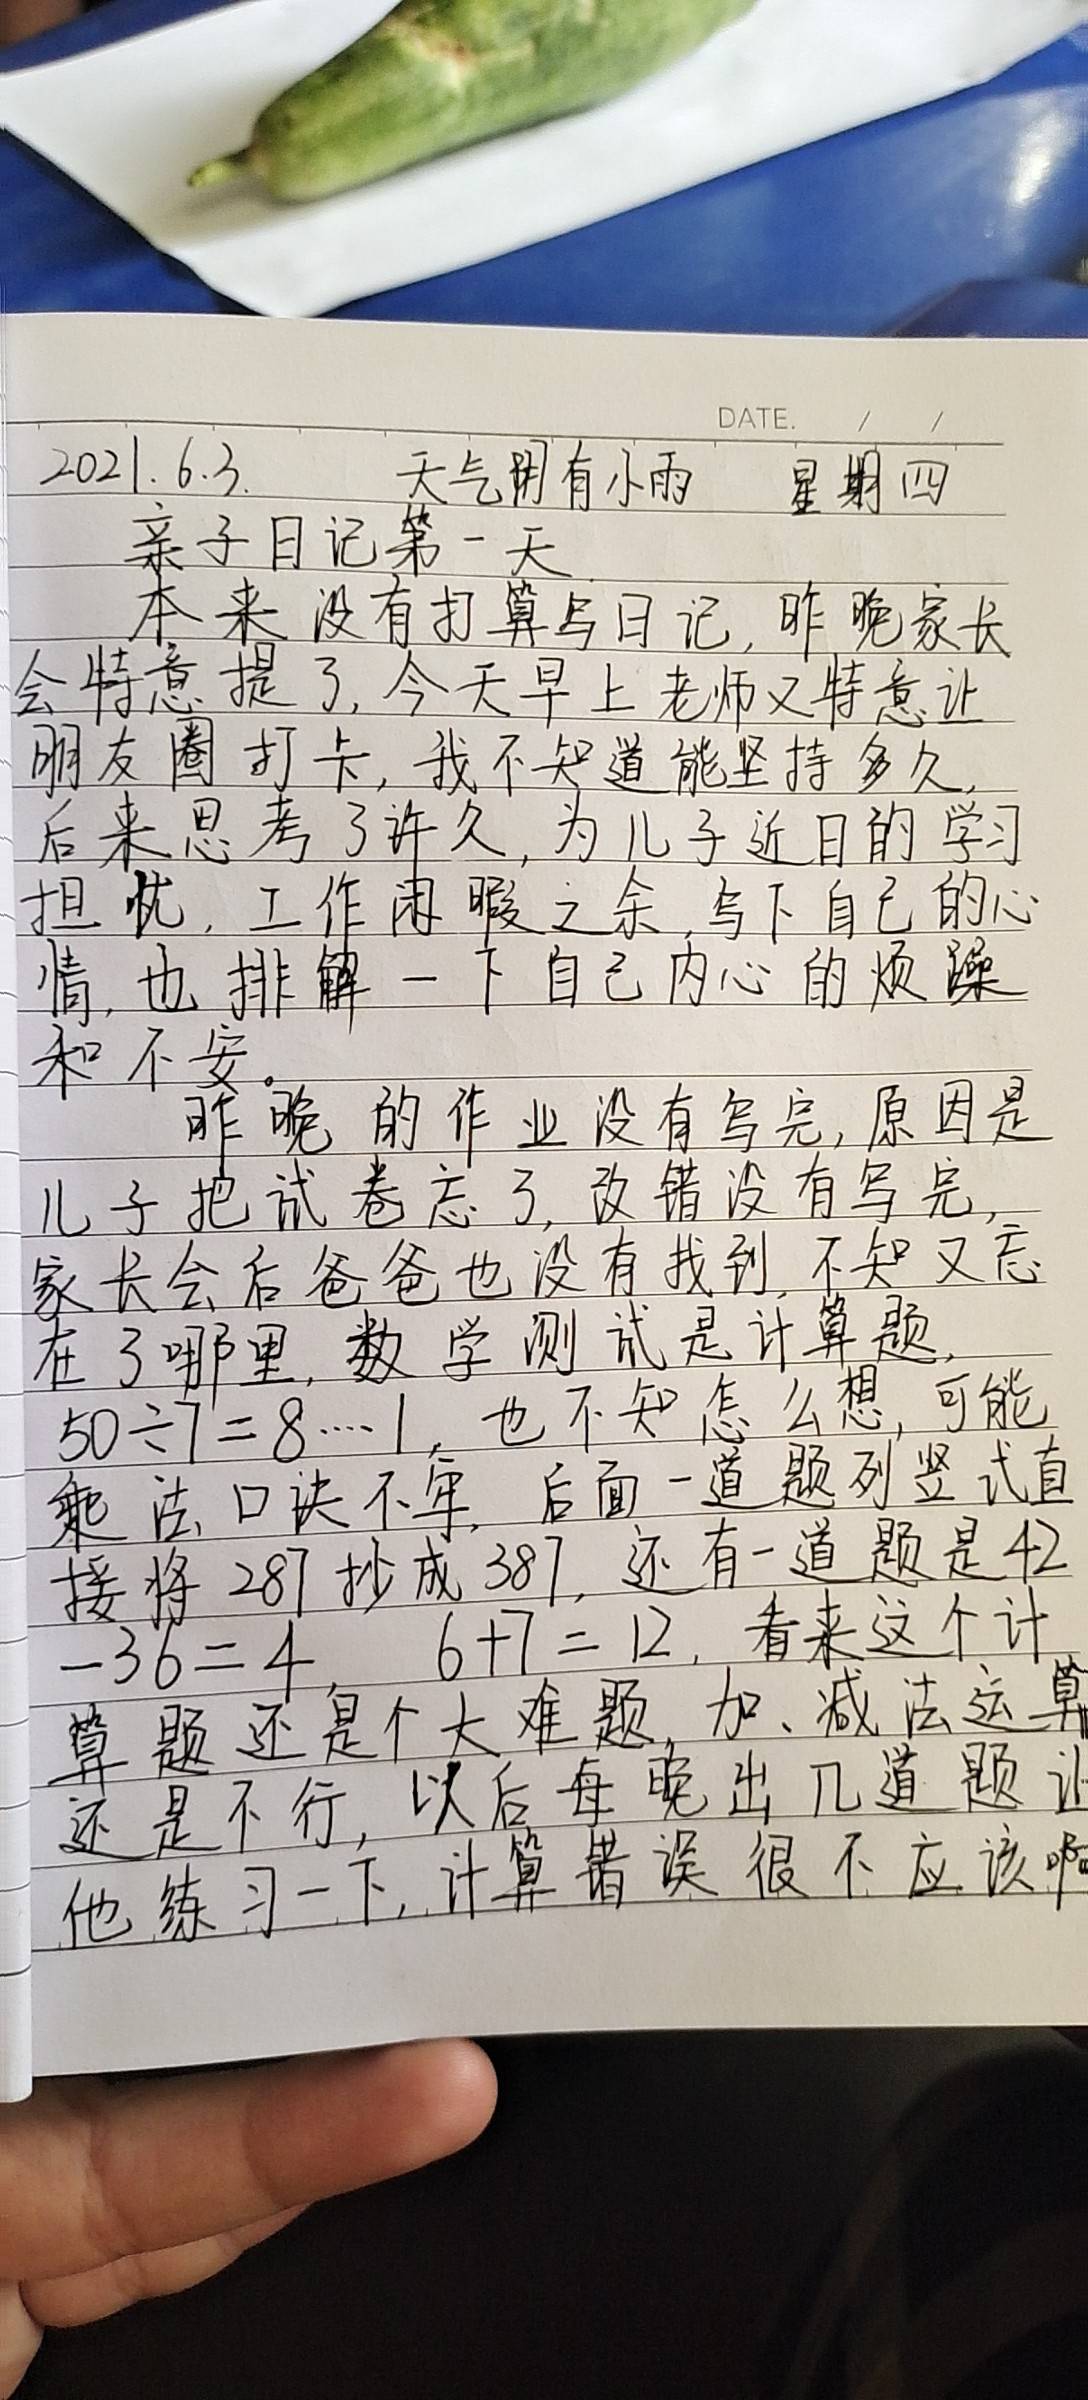 DATE. / /
2021.6.3. 天气阴有小雨 星期四
亲子日记第一天
本来没有打算写日记,昨晚家长
会特意提了,今天早上老师又特意让
朋友圈打卡,我不知道能坚持多久,
后来思考了许久,为儿子近日的学习
担忧,工作闲暇之余,写下自己的心
情,也排解一下自己内心的烦躁
和不安。
昨晚的作业没有写完,原因是
儿子把试卷忘了,改错没有写完,
家长会后爸爸也没有找到,不知又忘
在了哪里,数学测试是计算题,
50÷7=8····1,也不知怎么想,可能
乘法口诀不牢,后面一道题列竖式直
接将287抄成387,还有一道题是42
-36=4, 6+7=12,看来这个计
算题还是个大难题,加、减法运算
还是不行,以后每晚出几道题让
他练习一下,计算错误很不应该啊